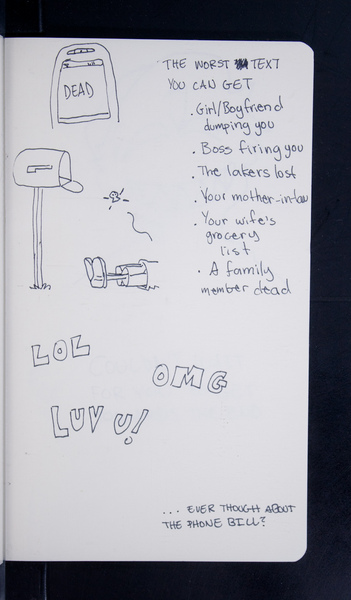 DEAD
THE WORST TEXT
YOU CAN GET
. Girl/Boyfriend
dumping you
. Boss firing you
. The lakers lost
. Your mother-in-law
. Your wife's
grocery
list
. A family
member dead
LOL
OMG
LUV U!
... EVER THOUGH ABOUT
THE PHONE BILL?